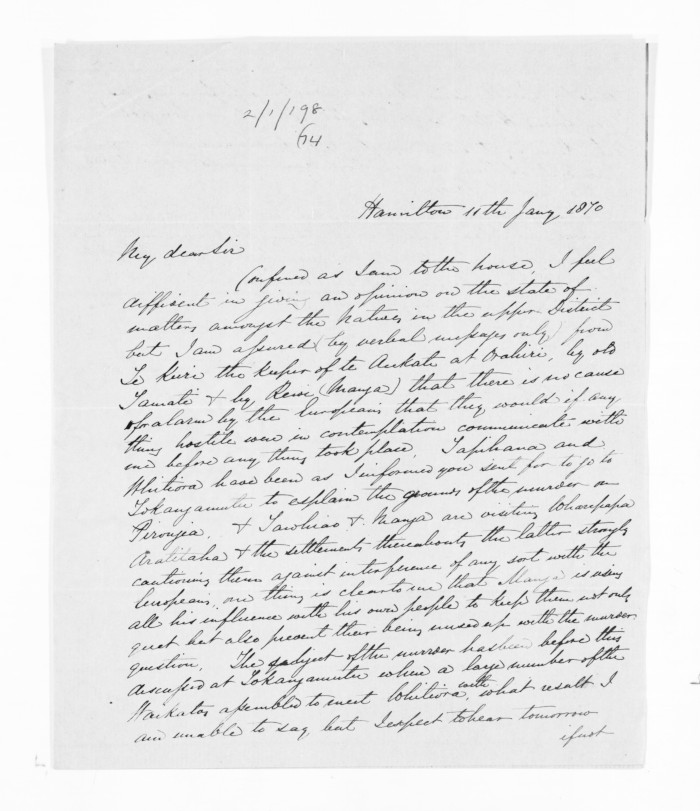 2/1/198
(74
Hamilton 11th Jany 1870
My dear Sir
Confined as I am to the house, I feel
diffisent in giving an opinion on the state of
matters amongst the Natives in the upper District
but I am assured (by verbal messages only) from
Te Kuri the keeper of te Aukati at Orahiri, by old
Tamati & by Rewi (Manga) that there is no cause
for alarm by the Europeans that they would if any
thing hostile were in contemplation communicate with
me before any thing took place. Tapihana and
Whitiora have been as I informed you sent for to go to
Tokangamutu to explain the grounds of the murder on
Pirongia. & Tawhiao & Manga are visiting Wharepapa
Aratitaha & the settlements thereabouts the latter strongly
cautioning them against interference of any sort with the
Europeans, one thing is clear to me that Manga is using
all his influence with his own people to keep them not only
quiet but also prevent their being mixed up with the murder
question. The subject of the murder has been before this
discussed at Tokangamutu when a large number of the
Waikatos assembled to meet Whitiora, with what result I
am unable to say, but I expect to hear tomorrow
if not